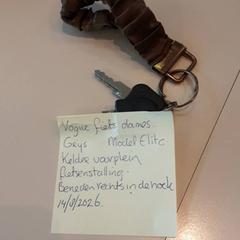 Vogue fiets dames.
Grys Model Elite
Kelder voorplein
fietsenstalling.
Beneden rechts in de hoek
14/8/2026.